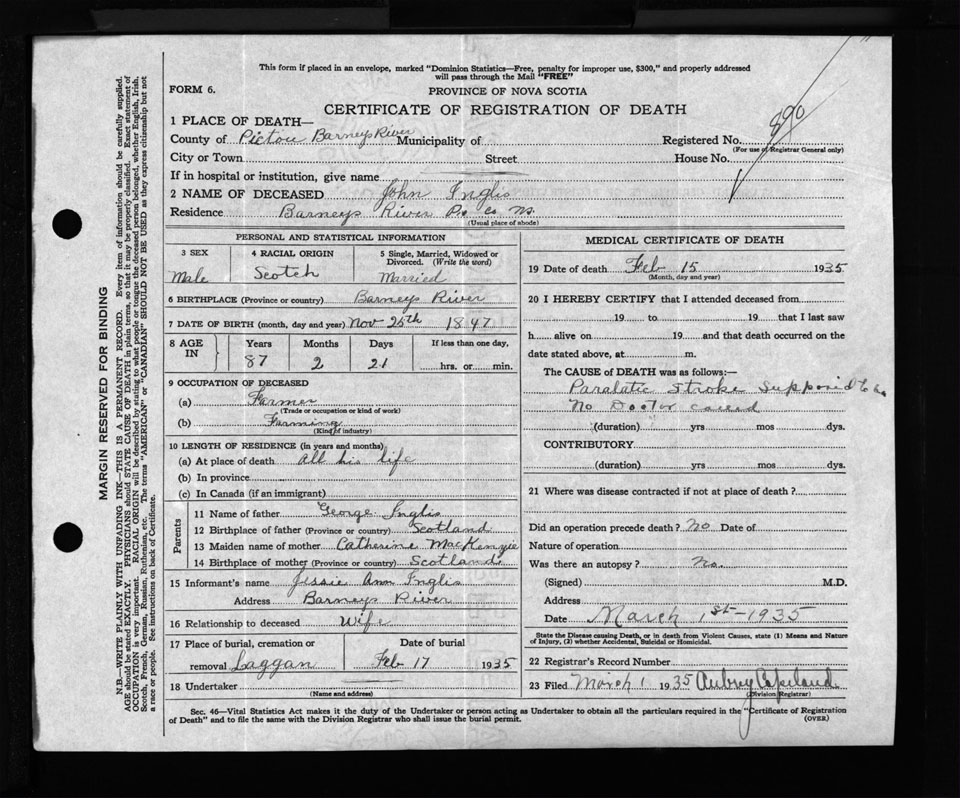 This form if placed in an envelope, marked "Dominion Statistics—Free, penalty for improper use, $300," and properly addressed
will pass through the Mail "FREE"
FORM 6.
PROVINCE OF NOVA SCOTIA
CERTIFICATE OF REGISTRATION OF DEATH
890
1 PLACE OF DEATH—
County of Pictou Barneys River Municipality of Registered No.
(For use of Registrar General only)
City or Town Street House No.
If in hospital or institution, give name
2 NAME OF DECEASED John Inglis
Residence Barneys River
(Usual place of abode)
PERSONAL AND STATISTICAL INFORMATION
3 SEX
Male
4 RACIAL ORIGIN
Scotch
5 Single, Married, Widowed or
Divorced. (Write the word)
Married
6 BIRTHPLACE (Province or country) Barneys River
7 DATE OF BIRTH (month, day and year) Nov 25th 1847
8 AGE
IN
Years Months Days If less than one day,
87 2 21 hrs. or min.
9 OCCUPATION OF DECEASED
(a) Farmer
(Trade or occupation or kind of work)
(b) Farming
(Kind of industry)
10 LENGTH OF RESIDENCE (in years and months)
(a) At place of death all his life
(b) In province
(c) In Canada (if an immigrant)
Parents
11 Name of father George Inglis
12 Birthplace of father (Province or country) Scotland
13 Maiden name of mother Catherine MacKenzie
14 Birthplace of mother (Province or country) Scotland
15 Informant's name Jessie Ann Inglis
Address Barneys River
16 Relationship to deceased Wife
17 Place of burial, cremation or Date of burial
removal Laggan Feb 17 1935
18 Undertaker
(Name and address)
MEDICAL CERTIFICATE OF DEATH
19 Date of death Feb 15 1935
(Month, day and year)
20 I HEREBY CERTIFY that I attended deceased from
19 to 19 that I last saw
h alive on 19 and that death occurred on the
date stated above, at m.
The CAUSE of DEATH was as follows:—
Paralatic Stroke Supposid to be
No Doctor called
(duration) yrs mos dys.
CONTRIBUTORY
(duration) yrs mos dys.
21 Where was disease contracted if not at place of death?
Did an operation precede death? No Date of
Nature of operation
Was there an autopsy? No.
(Signed) M.D.
Address
Date March 1st—1935
State the Disease causing Death, or in death from Violent Causes, state (1) Means and Nature
of Injury, (2) whether Accidental, Suicidal or Homicidal.
22 Registrar's Record Number
23 Filed March 1 1935 Aubrey Copeland
(Division Registrar)
Sec. 46—Vital Statistics Act makes it the duty of the Undertaker or person acting as Undertaker to obtain all the particulars required in the "Certificate of Registration
of Death" and to file the same with the Division Registrar who shall issue the burial permit.
(OVER)
MARGIN RESERVED FOR BINDING
N.B.—WRITE PLAINLY WITH UNFADING INK—THIS IS A PERMANENT RECORD. Every item of information should be carefully supplied.
AGE should be stated EXACTLY. PHYSICIANS should STATE CAUSE OF DEATH in plain terms, so that it may be properly classified. Exact statement of
OCCUPATION is very important. RACIAL ORIGIN will be described by stating to what people or tongue the deceased person belonged, whether English, Irish,
Scotch, French, German, Russian, Ruthenian, etc. The terms "AMERICAN" or "CANADIAN" SHOULD NOT BE USED as they express citizenship but not
a race or people. See instructions on back of Certificate.